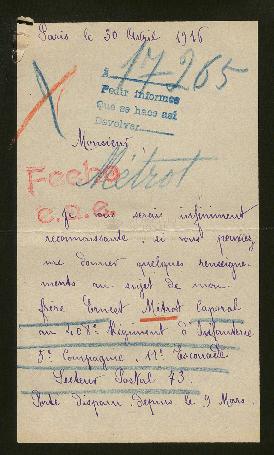 Paris le 30 Avril 1916
A 17-265
Pedir informes
Que se hace así
Devolver
Monsieur
Métrot
Fecho
e.o.e.
Je vous serais infiniment
reconnaissante, si vous pouviez
me donner quelques renseigne-
ments au sujet de mon
frère Ernest Métrot Caporal
au 408e Régiment d'Infanterie
5e Compagnie. 11e Escouade
Secteur Postal 73.
Porté disparu depuis le 9 Mars.